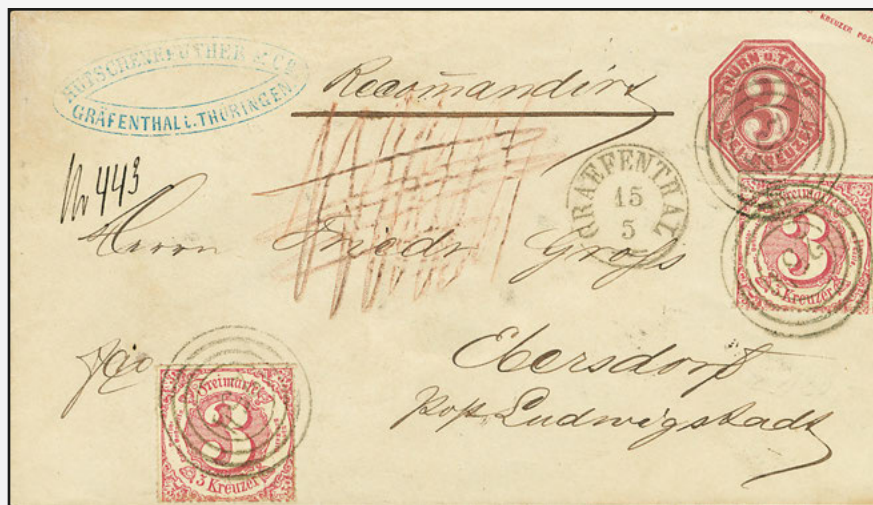 KREUZER POST
HUTSCHENREUTHER & CO.
GRÄFENTHAL i. THÜRINGEN.
Recom̄andirt
THURN U. TAXIS
3
DREI KREUZER
No 443
GRAEFENTHAL
15
5
Herrn Friedr Groß
Freimarke
3
3 Kreuzer
Ebersdorf
Post Ludwigstadt
Freimarke
3
3 Kreuzer